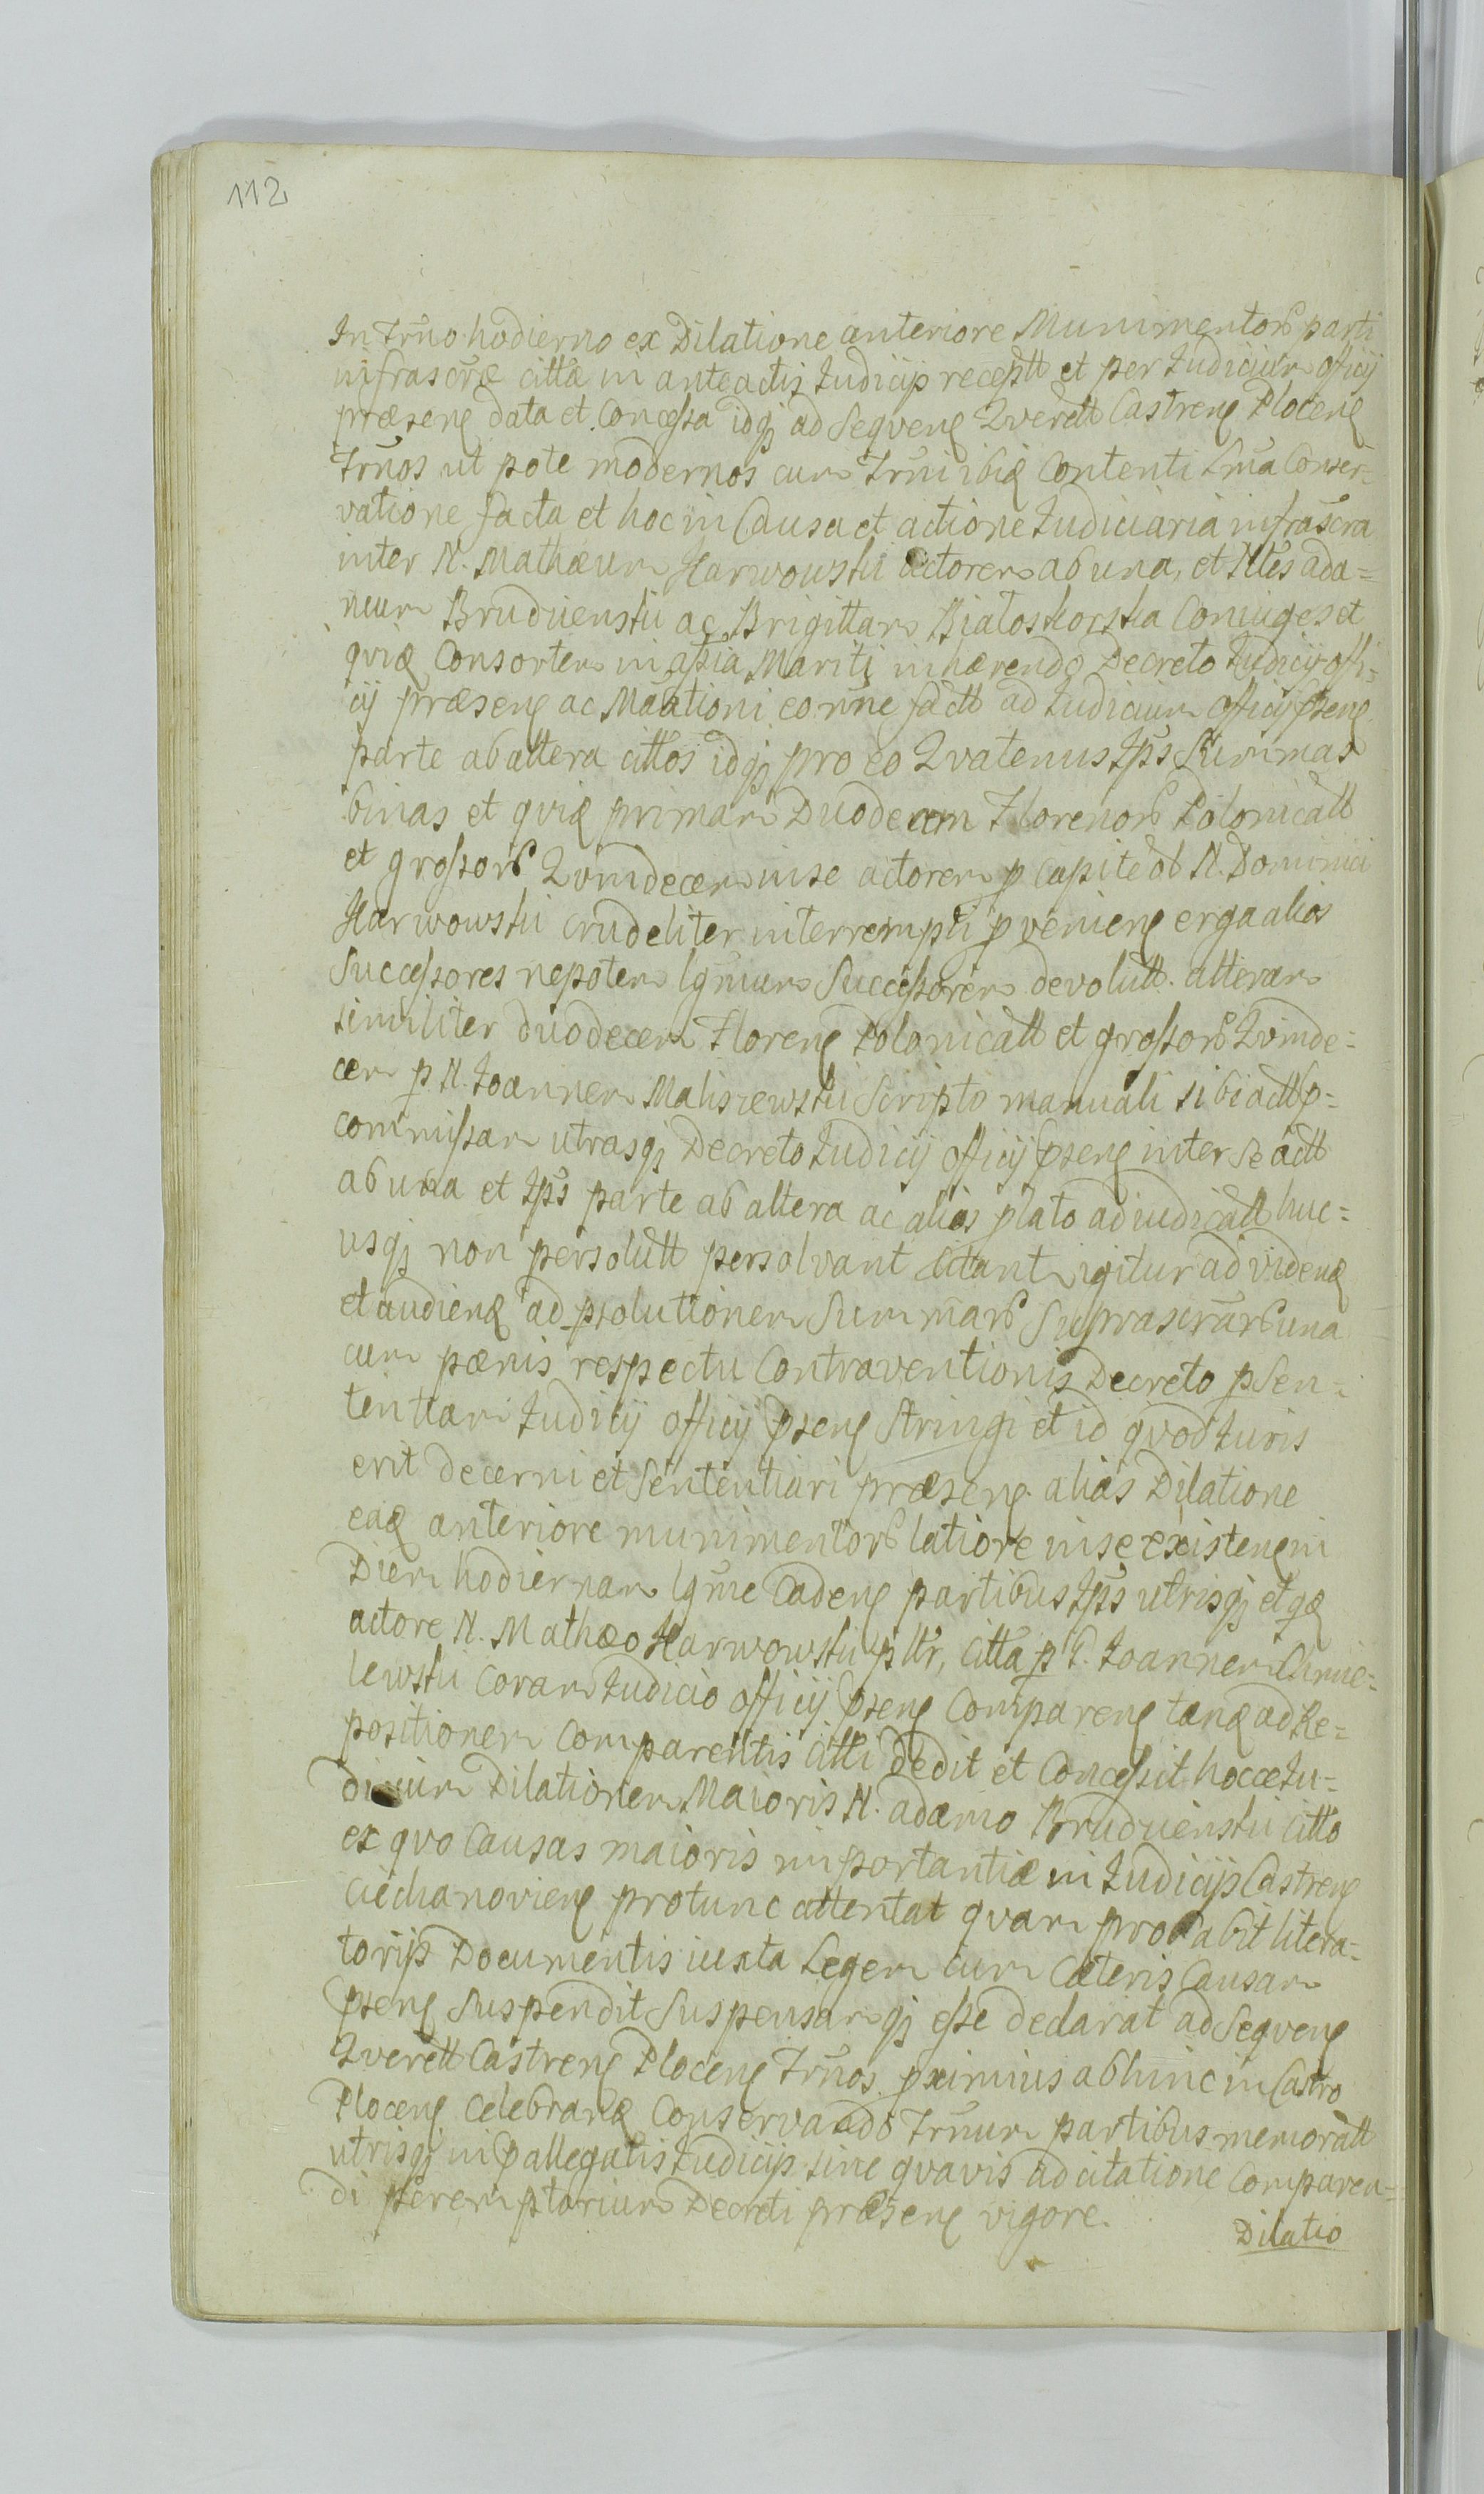 112
In Trnō hodierno ex Dilatione anteriore Munimentorꝝ parti
infrascr̄æ cittæ in anteactis Judicijs receptt et per Judicium officij
præsenꝭ data et Concessa idqꝫ ad Seqvenꝭ Qverelt Castrenꝭ Plocenꝭ
Trn̄os ut pote modernos cum Trn̄i ibiꝗ Contenti Lm̄a Conser=
vatione facta et hoc in Causa et actione Judiciaria infrascr̄a
inter N. Mathæum Karwowski actorem ab una, et Nles ada=
mum Bruduienski ac Brigittam Bialoskorska Coniuges et
qviꝗ Consortem in assīa Mariti inhærendo Decreto Judicij offi=
cij præsenꝭ ac Māātioni eorn̄ne factt ad Judicium officij p̄senꝭ
parte ab altera cittos idqꝫ pro eo Qvatenus Ips̄ Summas
binas et qviꝗ primam Duodecem Florenorꝝ Polonicalt
et grossorꝝ Qvindecem in se actorem p capite ob N. Dominici
Karwowski crudeliter interrempti pvenienꝭ erga alios
Successores nepotem lgm̄um Successorem devolutt. alteram
similiter duodecem Florenꝭ Polonicalt et grossorꝝ Qvinde=
cem p N. Joannem Maliszewski Scripto manuali sibi actt p=
commissam utrasqꝫ Decreto Judicij officij p̄senꝭ inter se actt
ab una et Ips̄ parte ab altera ac alias plato adiudicatt huc=
usqꝫ non persolutt persolvant Citant igitur ad videnꝗ
et audienꝗ ad psolutionem Summarꝝ Suprascr̄arꝝ una
cum pænis respectu Contraventionis Decreto p Sen=
tentiam Judicij officij p̄senꝭ Stringi et id qvod Juris
erit decerni et Sententiari præsenꝭ alias Dilatione
eaꝗ anteriore munimentorꝝ latiore in se existenꝭ in
Diem hodiernam lgm̄e Cadenꝭ partibus Ips̄ utrisqꝫ et qꝗ
actore N. Mathæo Karwowski pltr, citta p G. Joannem Chmie=
lewski Coram Judicio officij p̄senꝭ Comparenꝭ tanꝗ ad Re=
positionem Comparentis citti dedit et Concessit hocce Ju=
dicium Dilationem Maioris N. adamo Bruduienski citto
ex qvo Causas maioris importantiæ in Judicijs Castrenꝭ
Ciechanovienꝭ protunc attentat qvam probabit litera=
torijs Documentis iuxta Legem cum Cæteris Causam
p̄senꝭ Suspendit Suspensamqꝫ esse declarat ad Seqvenꝭ
Qverelt Castrenꝭ Plocenꝭ Trn̄os pximius abhinc in Castro
Plocenꝭ Celebranꝗ Conservando Trn̄um partibus memoratt
utrisqꝫ in p̄allegatis Judicijs sine qvavis adcitatione Comparen=
di peremptorium Decreti præsenꝭ vigore.
Dilatio